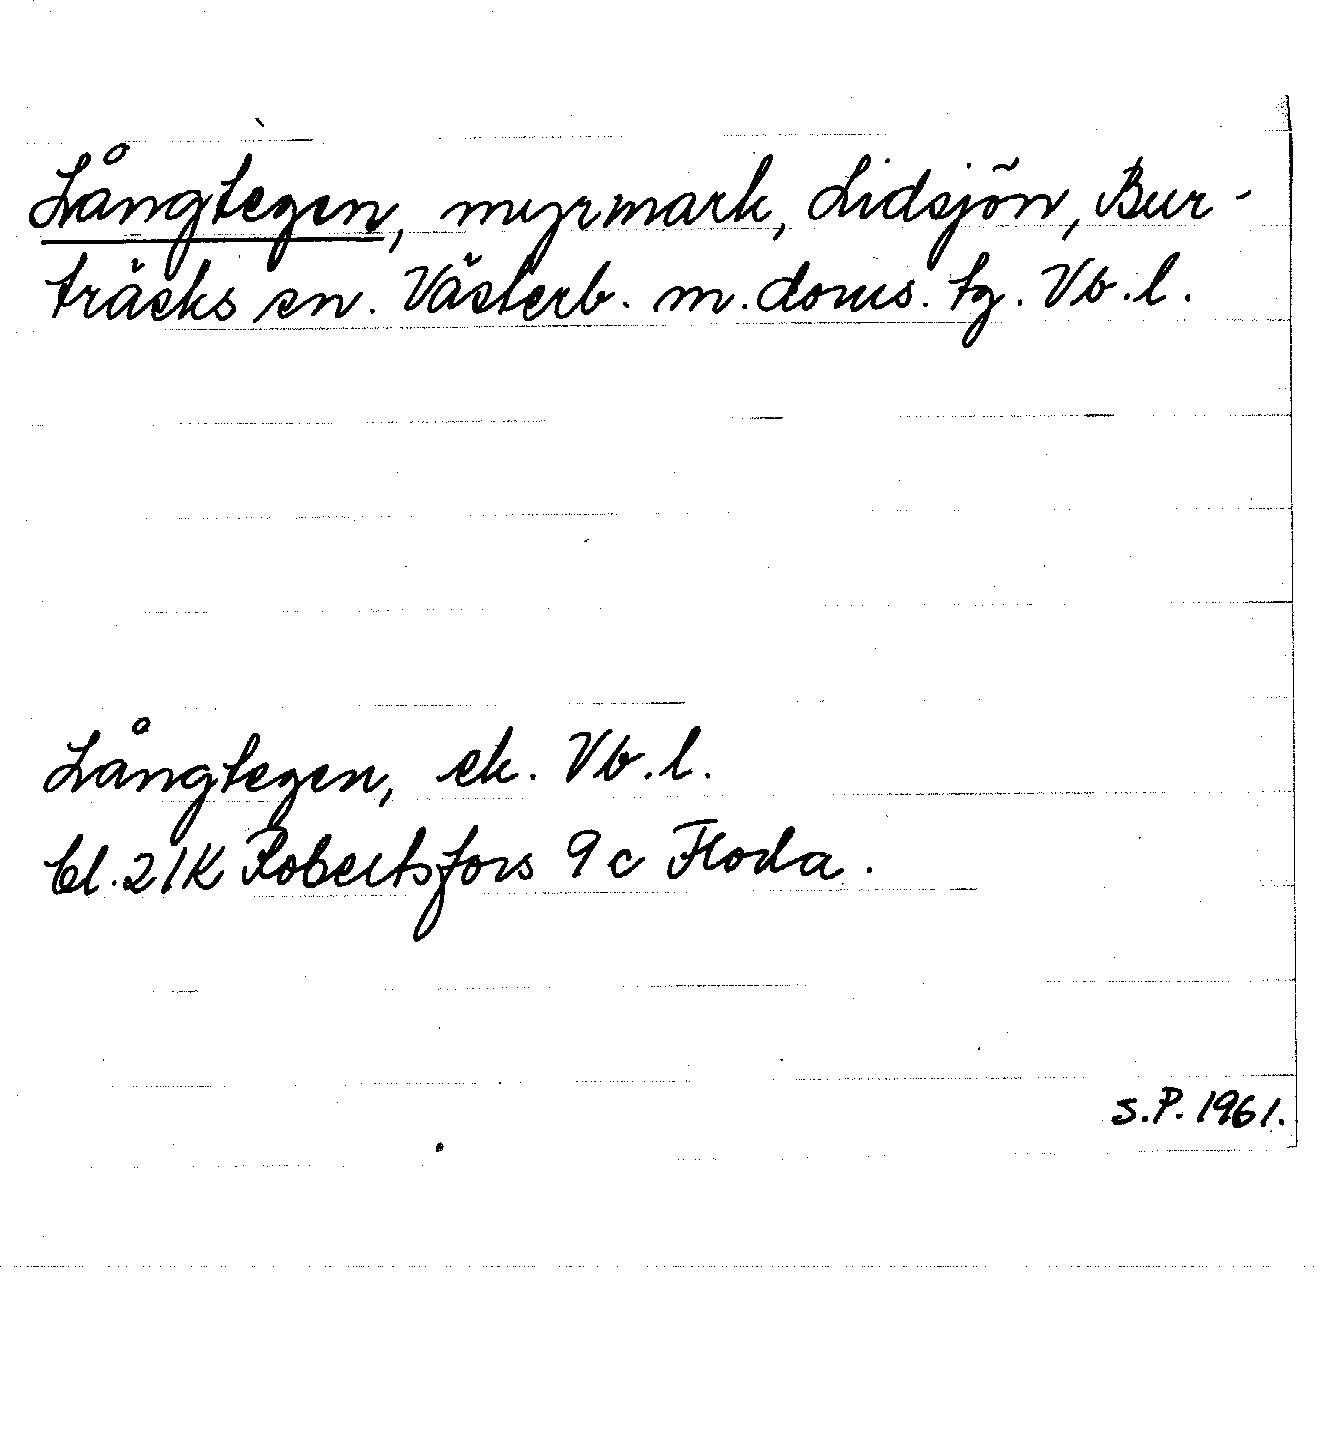 Långtegen, myrmark, Lidsjön, Bur-
träsks sn. Västerb. m. doms. tg. Vb.l.
Långtegen, ek. Vb.l.
bl. 21K Robertsfors 9c Floda.
S.P. 1961.